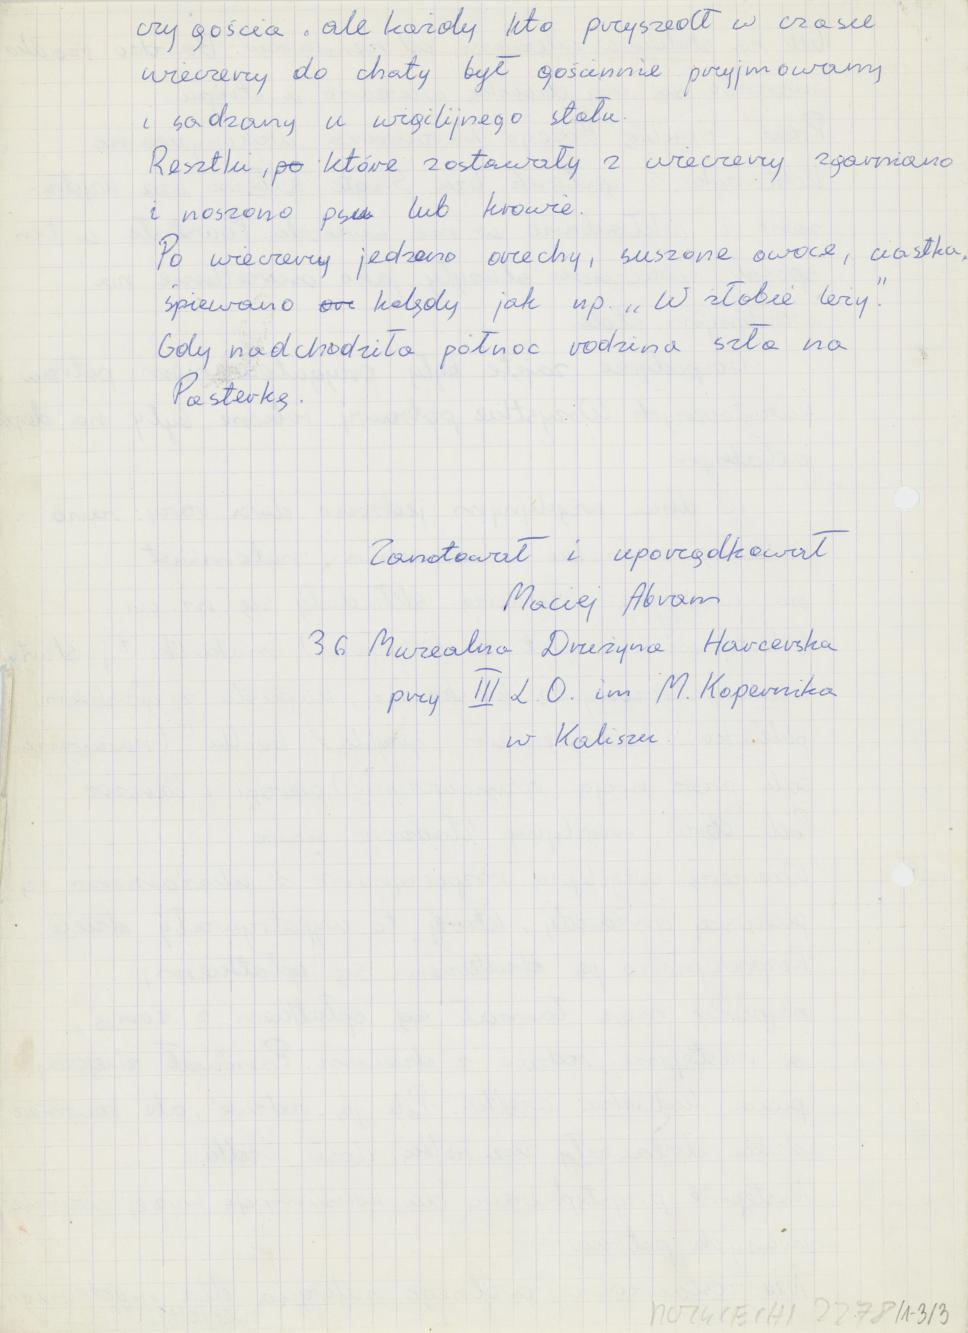 czy gościa. ale każdy kto przyszedł w czasie
wieczerzy do chaty był gościnnie przyjmowany
i sadzany u wigilijnego stołu.
Resztki, po które zostawały z wieczerzy zgarniano
i noszono psu lub krowie.
Po wieczerzy jedzono orzechy, suszone owoce, ciastka,
śpiewano kolędy jak np. „W żłobie leży".
Gdy nadchodziła północ rodzina szła na
Pasterkę.
Zanotował i uporządkował
Maciej Abram
36 Muzealna Drużyna Harcerska
przy III L.O. im M. Kopernika
w Kaliszu
2278/1-3/3